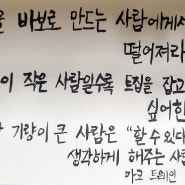 을 바보로 만드는 사람에게서
떨어져라
이 작은 사람일수록 트집을 잡고
싶어한
기량이 큰 사람은 "할 수 있다
생각하게 해주는 사람
마크 트웨인